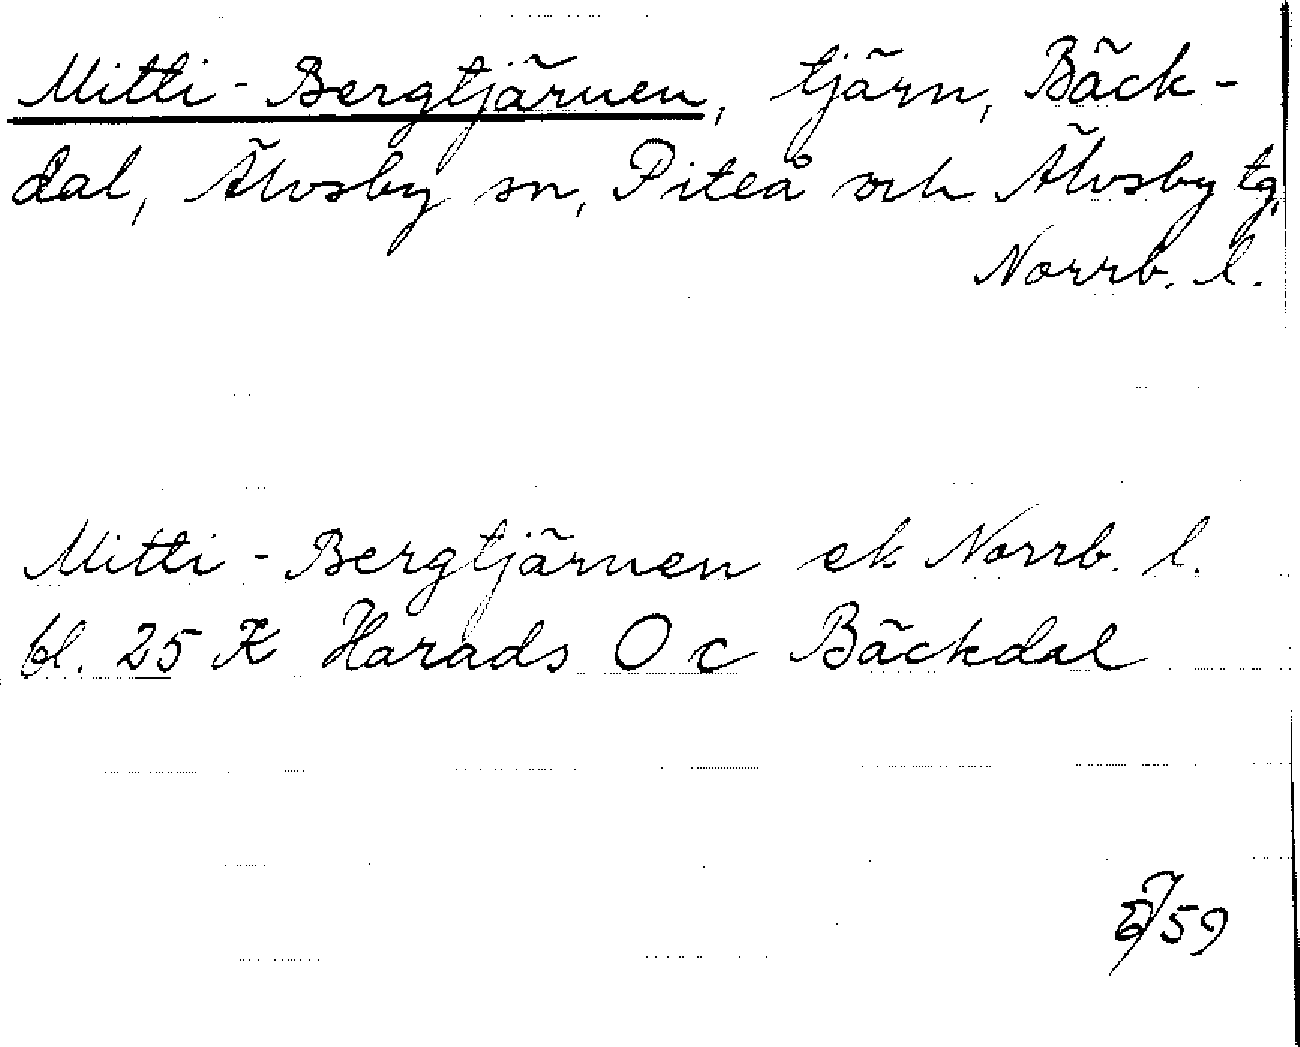 Mitti-Bergtjärnen, tjärn, Bäck-
dal, Älvsby sn, Piteå och Älvsby tg,
Norrb. l.
Mitti-Bergtjärnen ek Norrb. l.
bl. 25 K Harads O c Bäckdal
/59